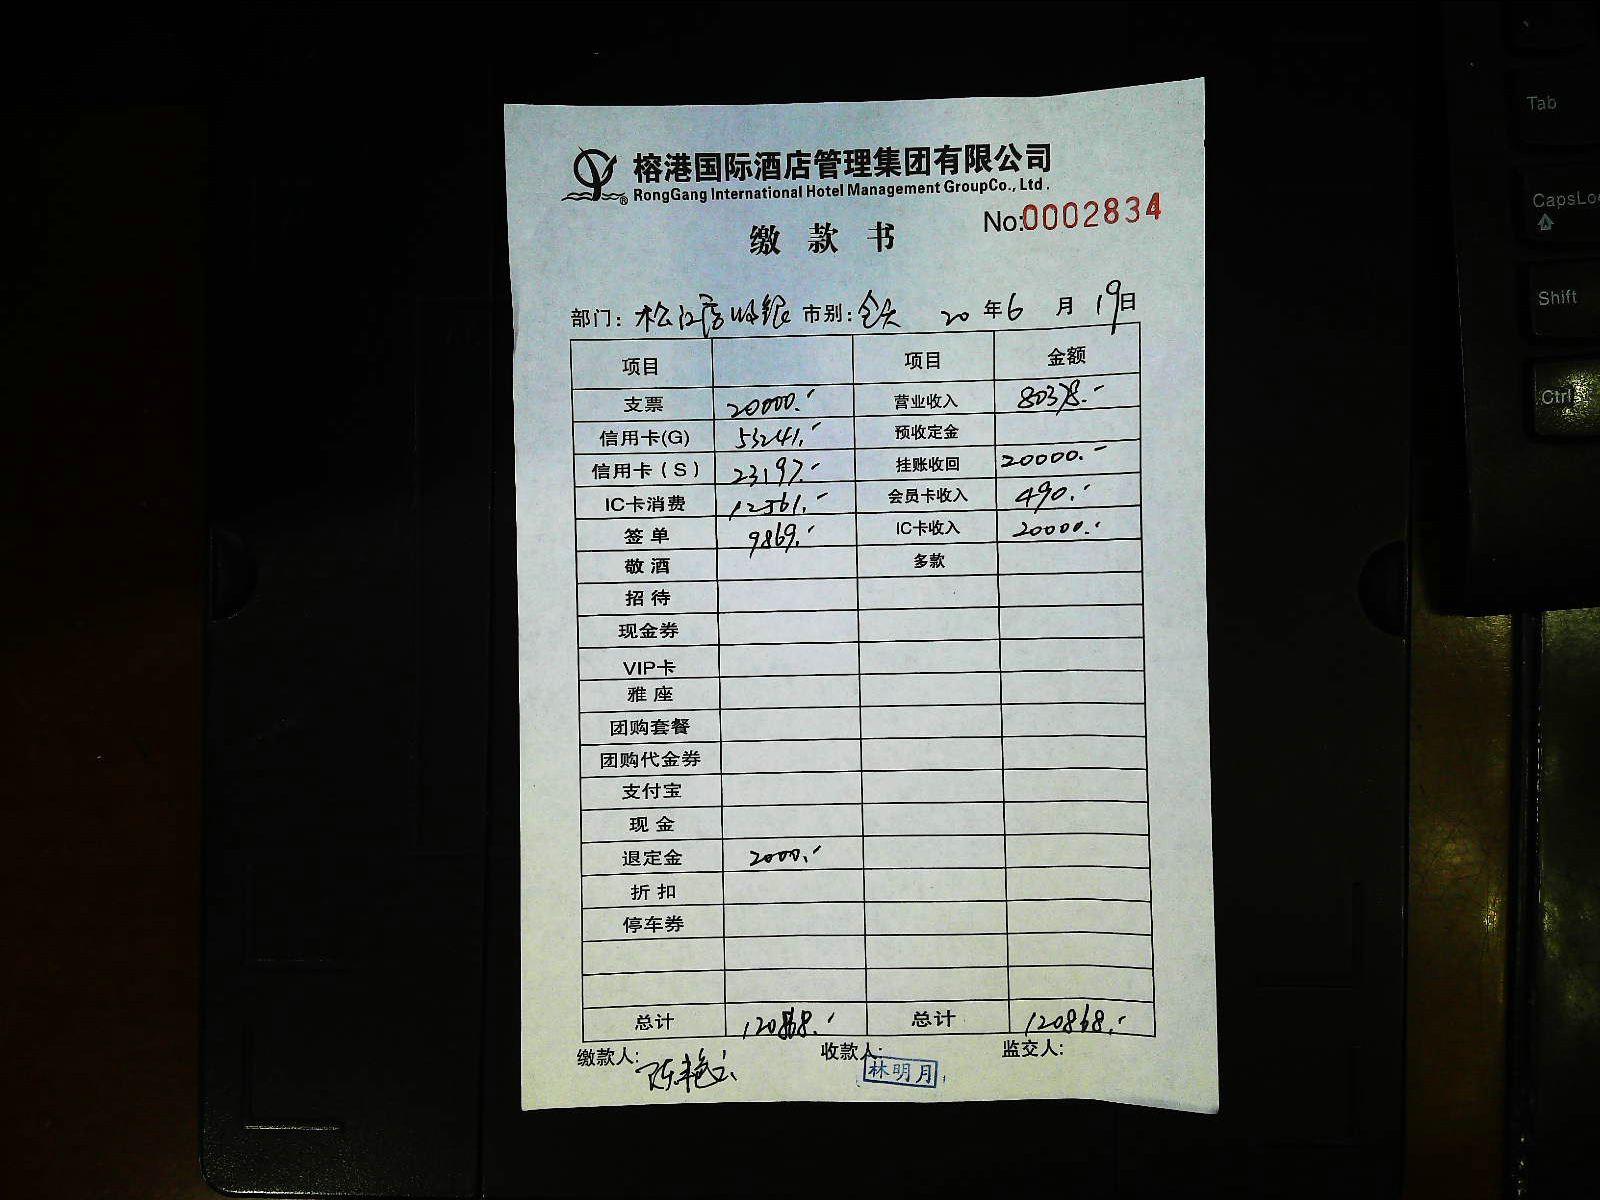 榕港国际酒店管理集团有限公司
RongGang International Hotel Management GroupCo., Ltd.
®
No:0002834
缴款书
部门: 松江店收银 市别: 全天 20 年 6 月 19 日
项目 项目 金额
支票 20000.- 营业收入 80378.-
信用卡(G) 53241.- 预收定金
信用卡(S) 23197.- 挂账收回 20000.-
IC卡消费 12561.- 会员卡收入 490.-
签单 9869.- IC卡收入 20000.-
敬酒 多款
招待
现金券
VIP卡
雅座
团购套餐
团购代金券
支付宝
现金
退定金 2000.-
折扣
停车券
总计 120868.- 总计 120868.-
缴款人: 收款人: 监交人:
林明月
Tab
CapsLo
Shift
Ctrl